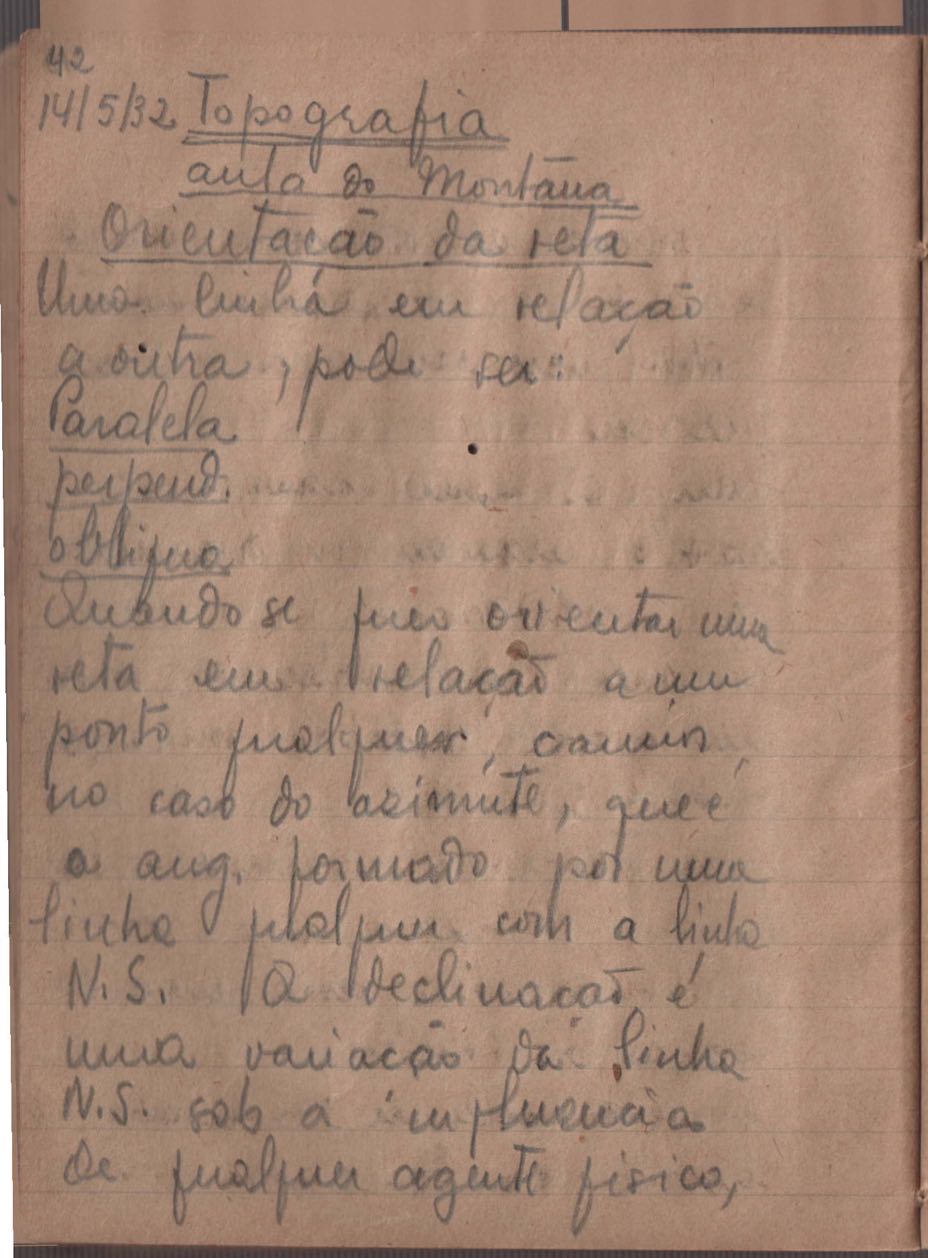 42
14/5/32 Topografia
aula do Montāna
Orientação da reta
Uma linha em relação
a outra, pode ser:
Paralela
perpend.
obliqua
Quando se quer orientar uma
reta em relação a um
ponto qualquer,
no caso do azimute, que é
o ang. formado por uma
linha qualquer com a linha
N.S. A declinacão é
uma variacão da linha
N.S. sob a influencia
de qualquer agente fisico,